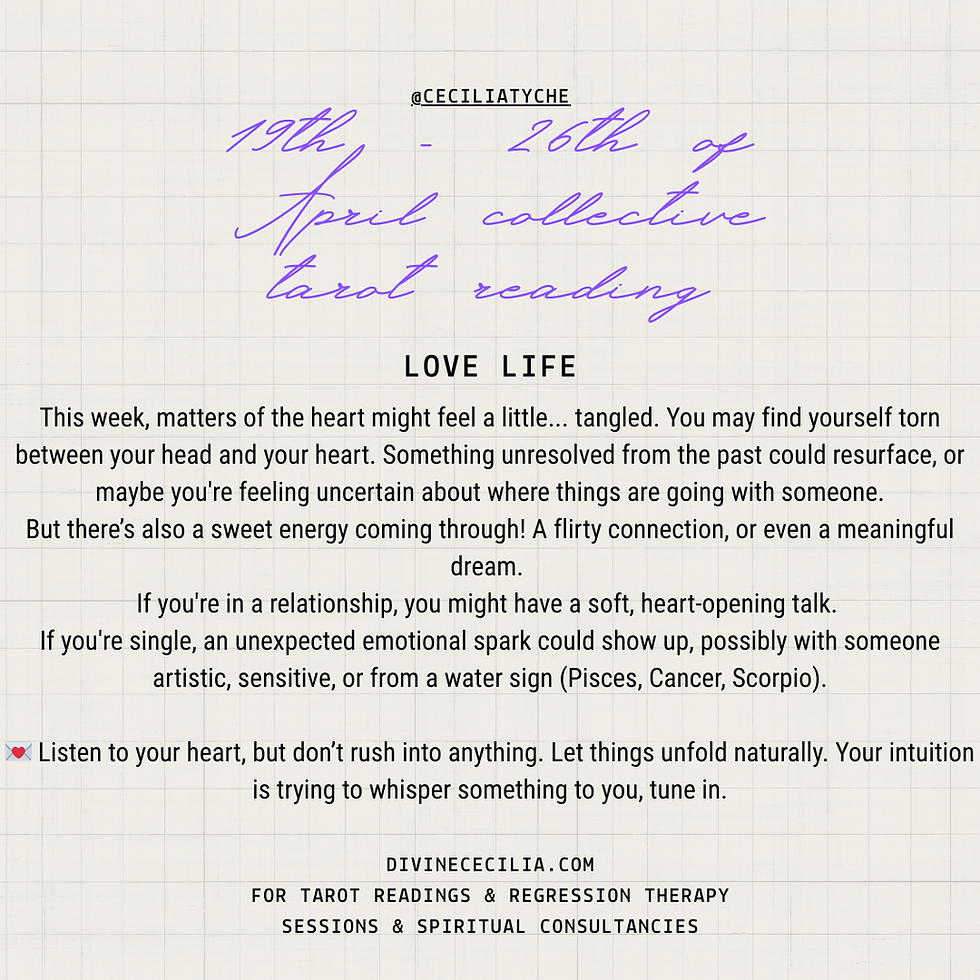 @CECILIATYCHE
19th - 26th of
April collective
tarot reading
LOVE LIFE
This week, matters of the heart might feel a little... tangled. You may find yourself torn
between your head and your heart. Something unresolved from the past could resurface, or
maybe you're feeling uncertain about where things are going with someone.
But there’s also a sweet energy coming through! A flirty connection, or even a meaningful
dream.
If you're in a relationship, you might have a soft, heart-opening talk.
If you're single, an unexpected emotional spark could show up, possibly with someone
artistic, sensitive, or from a water sign (Pisces, Cancer, Scorpio).
💌 Listen to your heart, but don’t rush into anything. Let things unfold naturally. Your intuition
is trying to whisper something to you, tune in.
DIVINECECILIA.COM
FOR TAROT READINGS & REGRESSION THERAPY
SESSIONS & SPIRITUAL CONSULTANCIES